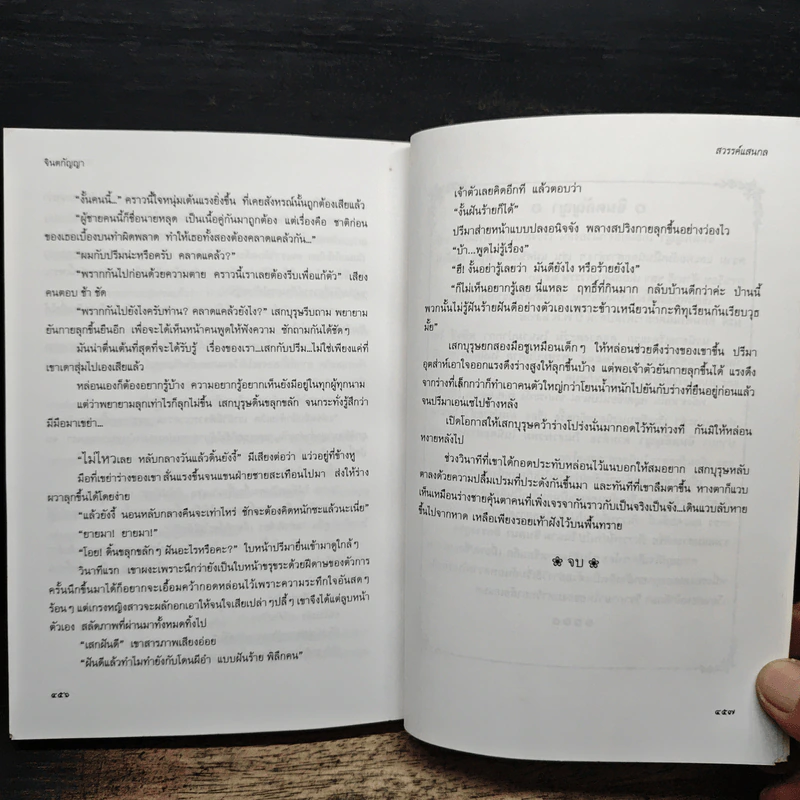 จินตกัญญา
"งั้นคนนี้..." คราวนี้ใจหนุ่มเต้นแรงยิ่งขึ้น ที่เคยสังหรณ์นั้นถูกต้องเสียแล้ว
"ผู้ชายคนนี้ก็ชื่อนายหลุด เป็นเนื้อคู่กันมาถูกต้อง แต่เรื่องคือ ชาติก่อน
ของเธอเบื้องบนทำผิดพลาด ทำให้เธอทั้งสองต้องคลาดแคล้วกัน..."
"ผมกับปรีมน่ะหรือครับ คลาดแคล้ว?"
"พรากกันไปก่อนด้วยความตาย คราวนี้เราเลยต้องรีบเพื่อแก้ตัว" เสียง
คนตอบ ช้า ชัด
"พรากกันไปยังไงครับท่าน? คลาดแคล้วยังไง?" เสกบุรุษรีบถาม พยายาม
ยันกายลุกขึ้นยืนอีก เพื่อจะได้เห็นหน้าคนพูดให้ฟังความ ซักถามกันได้ชัดๆ
มันน่าตื่นเต้นที่สุดที่จะได้รับรู้ เรื่องของเรา...เสกกับปรีม...ไม่ใช่เพียงแค่ที่
เขาเดาสุ่มไปเองเสียแล้ว
หล่อนเองก็ต้องอยากรู้บ้าง ความอยากรู้อยากเห็นยังมีอยู่ในทุกผู้ทุกนาม
แต่ว่าพยายามลุกเท่าไรก็ลุกไม่ขึ้น เสกบุรุษดิ้นขลุกขลัก จนกระทั่งรู้สึกว่า
มีมือมาเขย่า...
"ไม่ไหวเลย หลับกลางวันแล้วดิ้นยังงี้" มีเสียงต่อว่า แว่วอยู่ที่ข้างหู
มือที่เขย่าร่างของเขา สั่นแรงขึ้นจนแขนฝ่ายชายสะเทือนไปมา ส่งให้ร่าง
ผวาลุกขึ้นได้โดยง่าย
"แล้วยังงี้ นอนหลับกลางคืนจะเท่าไหร่ ชักจะต้องคิดหนักซะแล้วนะเนี่ย"
"ยายมา! ยายมา!"
"โอย! ดิ้นขลุกขลักๆ ฝันอะไรหรือคะ?" ใบหน้าปรีมายื่นเข้ามาดูใกล้ๆ
วินาทีแรก เขาผงะเพราะนึกว่ายังเป็นใบหน้าขรุขระด้วยฝีดาษของตัวการ
ครั้นนึกขึ้นมาได้ก็อยากจะเอื้อมคว้ากอดหล่อนไว้เพราะความระทึกใจอันสดๆ
ร้อนๆ แต่เกรงหญิงสาวจะผลักอกเอาให้จนใจเสียเปล่าๆปลี้ๆ เขาจึงได้แต่ลูบหน้า
ตัวเอง สลัดภาพที่ผ่านมาทั้งหมดทิ้งไป
"เสกฝันดี" เขาสารภาพเสียงอ่อย
"ฝันดีแล้วทำไมทำยังกับโดนผีอำ แบบฝันร้าย พิลึกคน"
๔๕๖
สวรรค์แสนกล
เจ้าตัวเลยคิดอีกที แล้วตอบว่า
"งั้นฝันร้ายก็ได้"
ปรีมาส่ายหน้าแบบปลงอนิจจัง พลางสปริงกายลุกขึ้นอย่างว่องไว
"บ้า...พูดไม่รู้เรื่อง"
"ฮึ! งั้นอย่ารู้เลยว่า มันดียังไง หรือร้ายยังไง"
"ก็ไม่เห็นอยากรู้เลย นี่แหละ ฤทธิ์ที่กินมาก กลับบ้านดีกว่าค่ะ ป่านนี้
พวกนั้นไม่รู้ฝันร้ายฝันดีอย่างตัวเองเพราะข้าวเหนียวน้ำกะทิทุเรียนกันเรียบวุธ
มั้ย"
เสกบุรุษยกสองมือชูเหมือนเด็กๆ ให้หล่อนช่วยดึงร่างของเขาขึ้น ปรีมา
อุตส่าห์เอาใจออกแรงดึงร่างสูงให้ลุกขึ้นบ้าง แต่พอเจ้าตัวยันกายลุกขึ้นได้ แรงดึง
จากร่างที่เล็กกว่าก็ทำเอาคนตัวใหญ่กว่าโยนน้ำหนักไปยันกับร่างที่ยืนอยู่ก่อนแล้ว
จนปรีมาเอนเซไปข้างหลัง
เปิดโอกาสให้เสกบุรุษคว้าร่างโปร่งนั่นมากอดไว้ทันท่วงที กันมิให้หล่อน
หงายหลังไป
ช่วงวินาทีที่เขาได้กอดประทับหล่อนไว้แนบอกให้สมอยาก เสกบุรุษหลับ
ตาลงด้วยความปลื้มเปรมที่ประดังกันขึ้นมา และทันทีที่เขาลืมตาขึ้น หางตาก็แวบ
เห็นเหมือนร่างชายคุ้นตาคนที่เพิ่งเจรจากันราวกับเป็นจริงเป็นจัง...เดินแวบลับหาย
ขึ้นไปจากหาด เหลือเพียงรอยเท้าฝังไว้บนพื้นทราย
❀ จบ ❀
๔๕๗